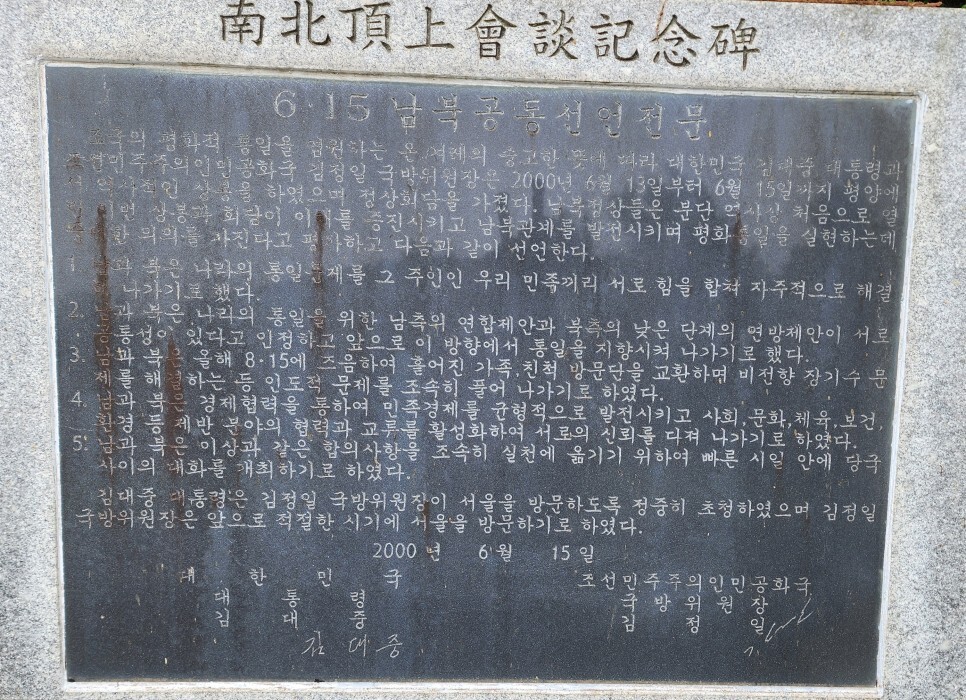 南北頂上會談記念碑
6·15 남북공동선언전문
조국의 평화적 통일을 염원하는 온 겨레의 숭고한 뜻에 따라 대한민국 김대중 대통령과
조선민주주의인민공화국 김정일 국방위원장은 2000년 6월 13일부터 6월 15일까지 평양에
서 역사적인 상봉을 하였으며 정상회담을 가졌다. 남북정상들은 분단 역사상 처음으로 열
린 이번 상봉과 회담이 이해를 증진시키고 남북관계를 발전시키며 평화통일을 실현하는데
의의를 가진다고 평가하고 다음과 같이 선언한다.
1. 남과 북은 나라의 통일문제를 그 주인인 우리 민족끼리 서로 힘을 합쳐 자주적으로 해결
나가기로 했다.
2. 남과 북은 나라의 통일을 위한 남측의 연합제안과 북측의 낮은 단계의 연방제안이 서로
공통성이 있다고 인정하고 앞으로 이 방향에서 통일을 지향시켜 나가기로 했다.
3. 남과 북은 올해 8·15에 즈음하여 흩어진 가족, 친척 방문단을 교환하며 비전향 장기수 문
제를 해결하는 등 인도적 문제를 조속히 풀어 나가기로 했다.
4. 남과 북은 경제협력을 통하여 민족경제를 균형적으로 발전시키고 사회, 문화, 체육, 보건,
환경 등 제반 분야의 협력과 교류를 활성화하여 서로의 신뢰를 다져 나가기로 하였다.
5. 남과 북은 이상과 같은 합의사항을 조속히 실천에 옮기기 위하여 빠른 시일 안에 당국
사이의 대화를 개최하기로 하였다.
김대중 대통령은 김정일 국방위원장이 서울을 방문하도록 정중히 초청하였으며 김정일
국방위원장은 앞으로 적절한 시기에 서울을 방문하기로 하였다.
2000년 6월 15일
대한민국 조선민주주의인민공화국
대통령 국방위원장
김대중 김정일
김대중